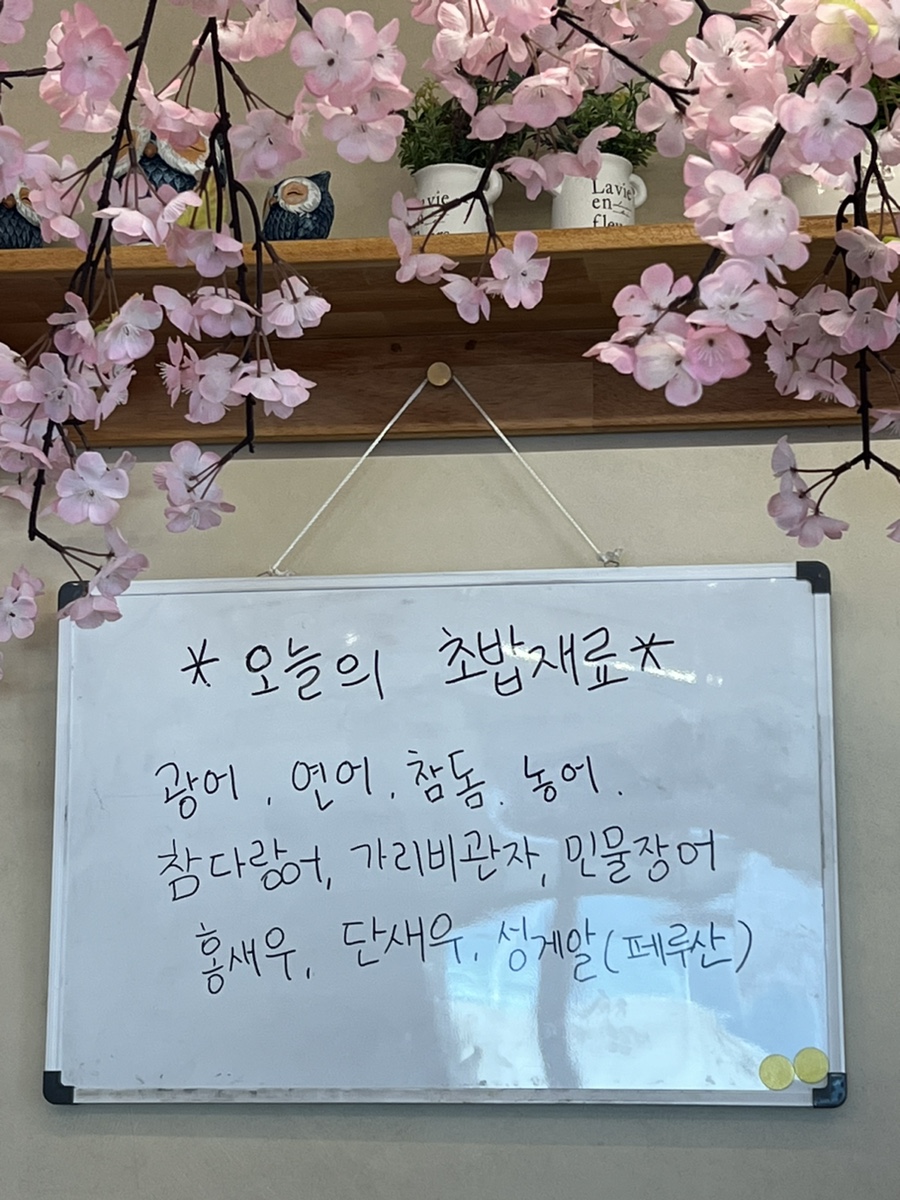 Lavie
en
* 오늘의 초밥재료 *
광어, 연어, 참돔, 농어.
참다랑어, 가리비관자, 민물장어
홍새우, 단새우, 성게알(페루산)